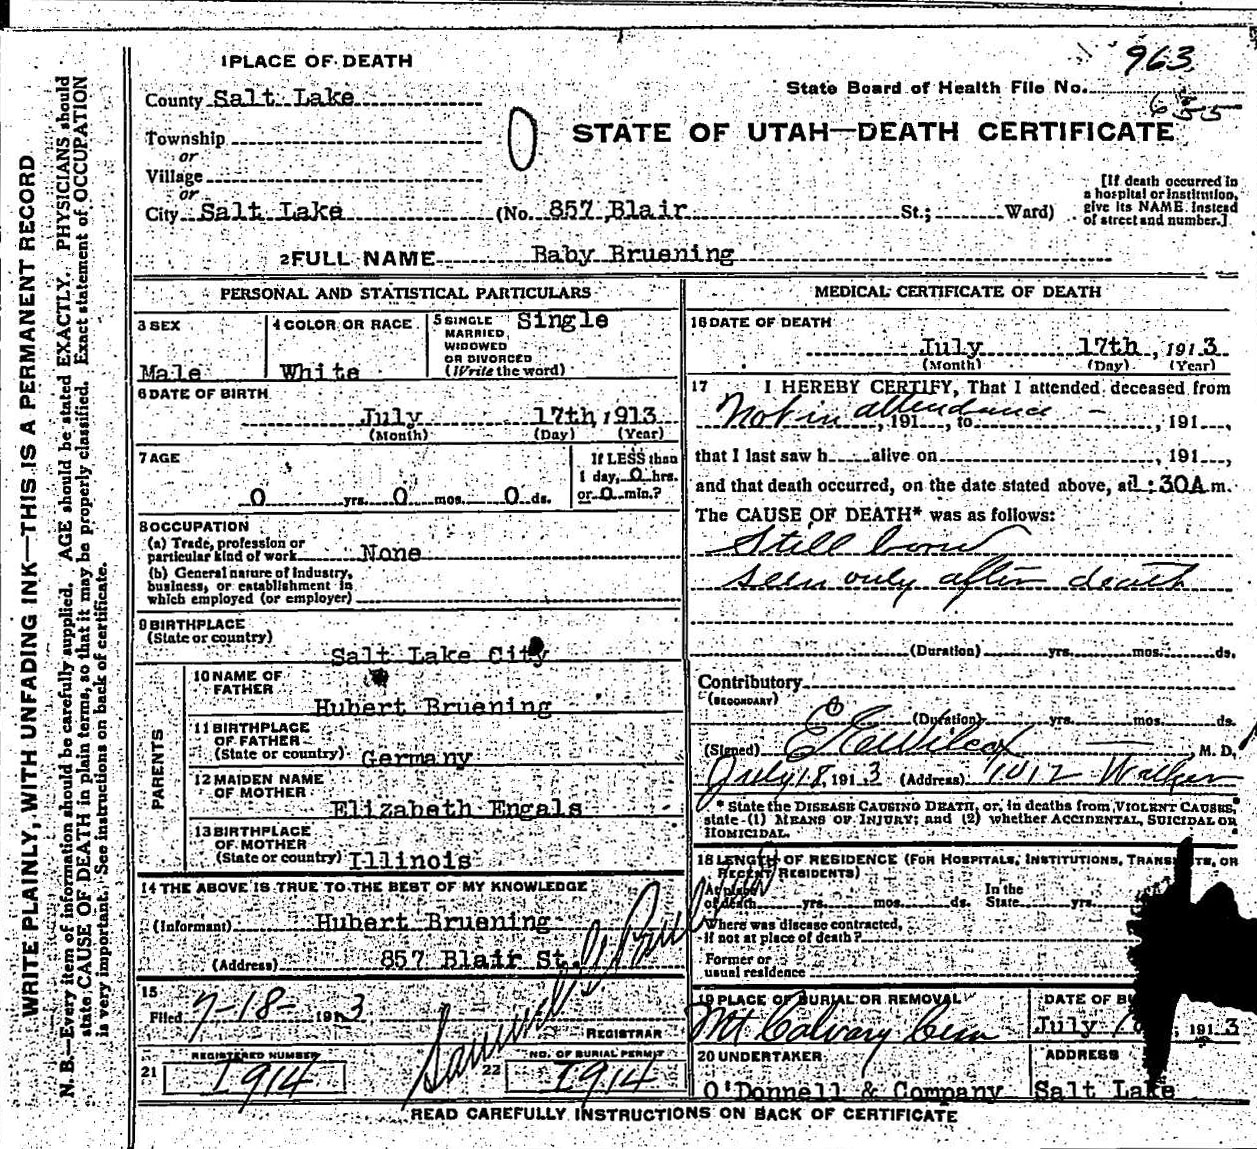 963
State Board of Health File No.
STATE OF UTAH—DEATH CERTIFICATE
1 PLACE OF DEATH
County Salt Lake
Township
or
Village
or
City Salt Lake (No. 857 Blair St.; Ward)
[If death occurred in
a hospital or institution,
give its NAME instead
of street and number.]
2 FULL NAME Baby Bruening
PERSONAL AND STATISTICAL PARTICULARS
3 SEX
Male
4 COLOR OR RACE
White
5 SINGLE
MARRIED
WIDOWED
OR DIVORCED
(Write the word)
Single
6 DATE OF BIRTH
July 17th, 1913
(Month) (Day) (Year)
7 AGE
0 yrs. 0 mos. 0 ds.
If LESS than
1 day, 0 hrs.
or 0 min.?
8 OCCUPATION
(a) Trade, profession or
particular kind of work None
(b) General nature of industry,
business, or establishment in
which employed (or employer)
9 BIRTHPLACE
(State or country)
Salt Lake City
PARENTS
10 NAME OF
FATHER
Hubert Bruening
11 BIRTHPLACE
OF FATHER
(State or country) Germany
12 MAIDEN NAME
OF MOTHER
Elizabeth Engals
13 BIRTHPLACE
OF MOTHER
(State or country) Illinois
14 THE ABOVE IS TRUE TO THE BEST OF MY KNOWLEDGE
(Informant) Hubert Bruening
(Address) 857 Blair St.
15
Filed 7-18- 1913
REGISTRAR
REGISTERED NUMBER
21 1914
NO. OF BURIAL PERMIT
22 1914
MEDICAL CERTIFICATE OF DEATH
16 DATE OF DEATH
July 17th, 1913
(Month) (Day) (Year)
17 I HEREBY CERTIFY, That I attended deceased from
Not in attendance - , 191 , to , 191 ,
that I last saw h alive on , 191 ,
and that death occurred, on the date stated above, at 1:30A m.
The CAUSE OF DEATH* was as follows:
Still born
seen only after death
(Duration) yrs. mos. ds.
Contributory
(SECONDARY)
(Duration) yrs. mos. ds.
(Signed) Wilcox M. D.
July 18, 1913 (Address) 1012 Walker
* State the DISEASE CAUSING DEATH, or, in deaths from VIOLENT CAUSES,
state (1) MEANS OF INJURY; and (2) whether ACCIDENTAL, SUICIDAL OR
HOMICIDAL.
18 LENGTH OF RESIDENCE (FOR HOSPITALS, INSTITUTIONS, TRANSIENTS, OR
RECENT RESIDENTS)
At place
of death yrs. mos. ds.
In the
State yrs.
Where was disease contracted,
if not at place of death?
Former or
usual residence
19 PLACE OF BURIAL OR REMOVAL
Mt Calvary Cem
DATE OF BU
July , 1913
20 UNDERTAKER
O'Donnell & Company
ADDRESS
Salt Lake
READ CAREFULLY INSTRUCTIONS ON BACK OF CERTIFICATE
WRITE PLAINLY, WITH UNFADING INK—THIS IS A PERMANENT RECORD
N. B.—Every item of information should be carefully supplied. AGE should be stated EXACTLY. PHYSICIANS should
state CAUSE OF DEATH in plain terms, so that it may be properly classified. Exact statement of OCCUPATION
is very important. See instructions on back of certificate.